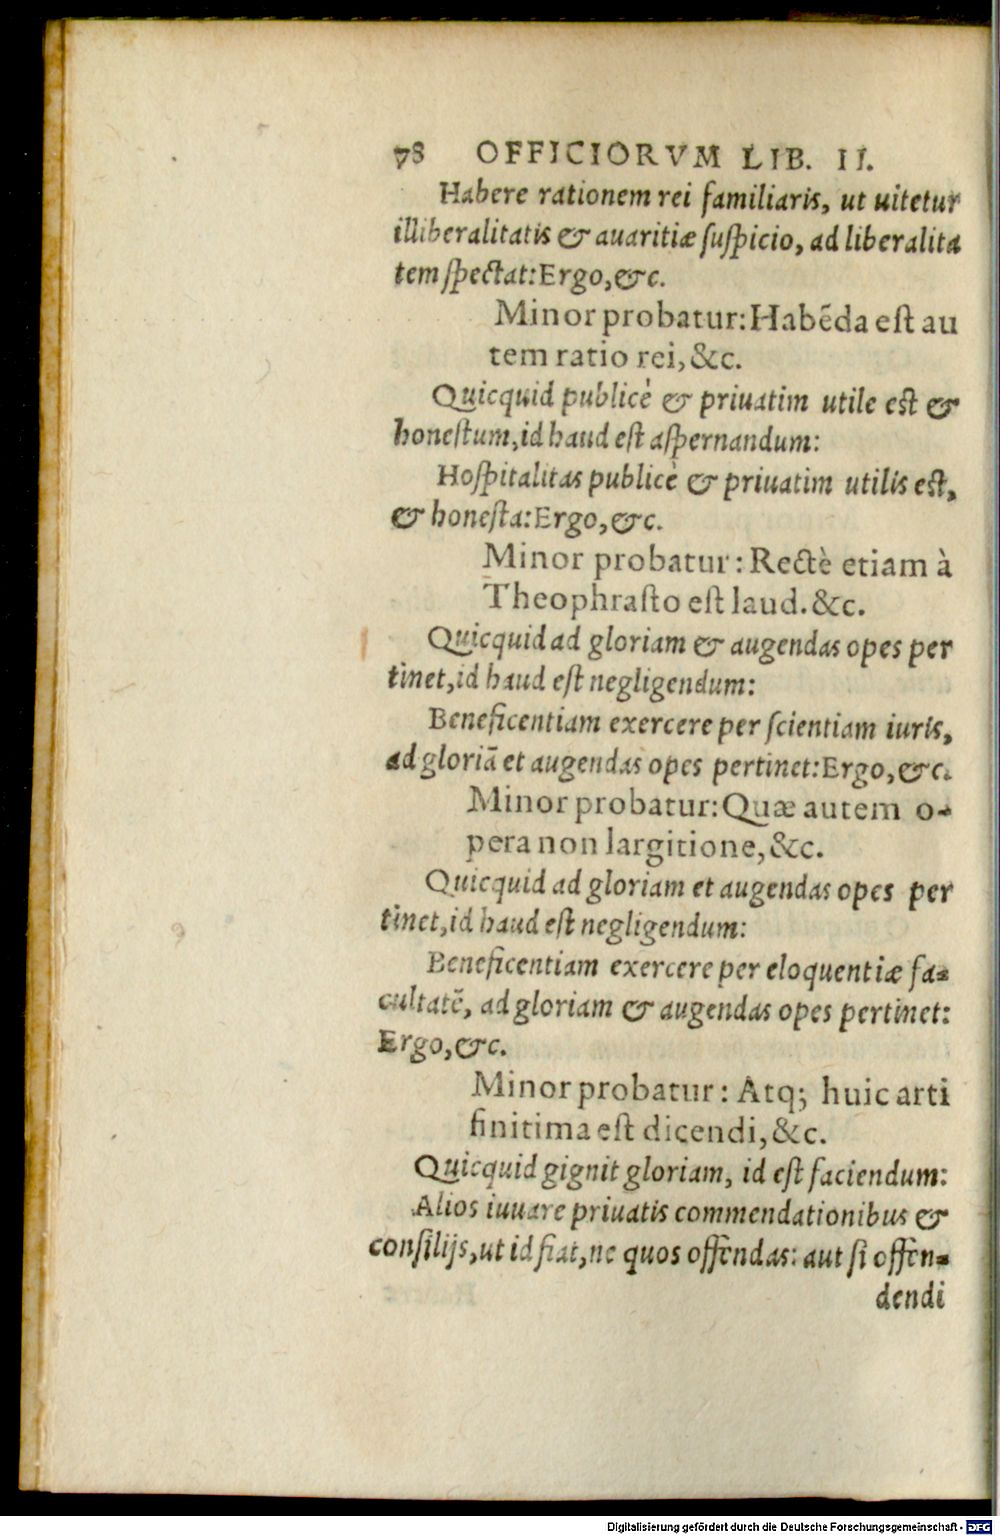 78 OFFICIORVM LIB. II.
Habere rationem rei familiaris, ut uitetur
illiberalitatis & auaritiæ ſuſpicio, ad liberalita
tem ſpectat: Ergo, &c.
Minor probatur: Habẽda eſt au
tem ratio rei, &c.
Quicquid publicè & priuatim utile est &
honeſtum, id haud eſt aſpernandum:
Hoſpitalitas publicè & priuatim utilis est,
& honeſta: Ergo, &c.
Minor probatur: Rectè etiam à
Theophraſto eſt laud. &c.
Quicquid ad gloriam & augendas opes per
tinet, id haud eſt negligendum:
Beneficentiam exercere per ſcientiam iuris,
ad gloriã et augendas opes pertinet: Ergo, &c.
Minor probatur: Quæ autem o-
pera non largitione, &c.
Quicquid ad gloriam et augendas opes per
tinet, id haud eſt negligendum:
Beneficentiam exercere per eloquentiæ fa-
cultatẽ, ad gloriam & augendas opes pertinet:
Ergo, &c.
Minor probatur: Atq; huic arti
finitima eſt dicendi, &c.
Quicquid gignit gloriam, id eſt faciendum:
Alios iuuare priuatis commendationibus &
conſilijs, ut id fiat, ne quos offendas: aut ſi offen-
dendi
Digitalisierung gefördert durch die Deutsche Forschungsgemeinschaft - DFG